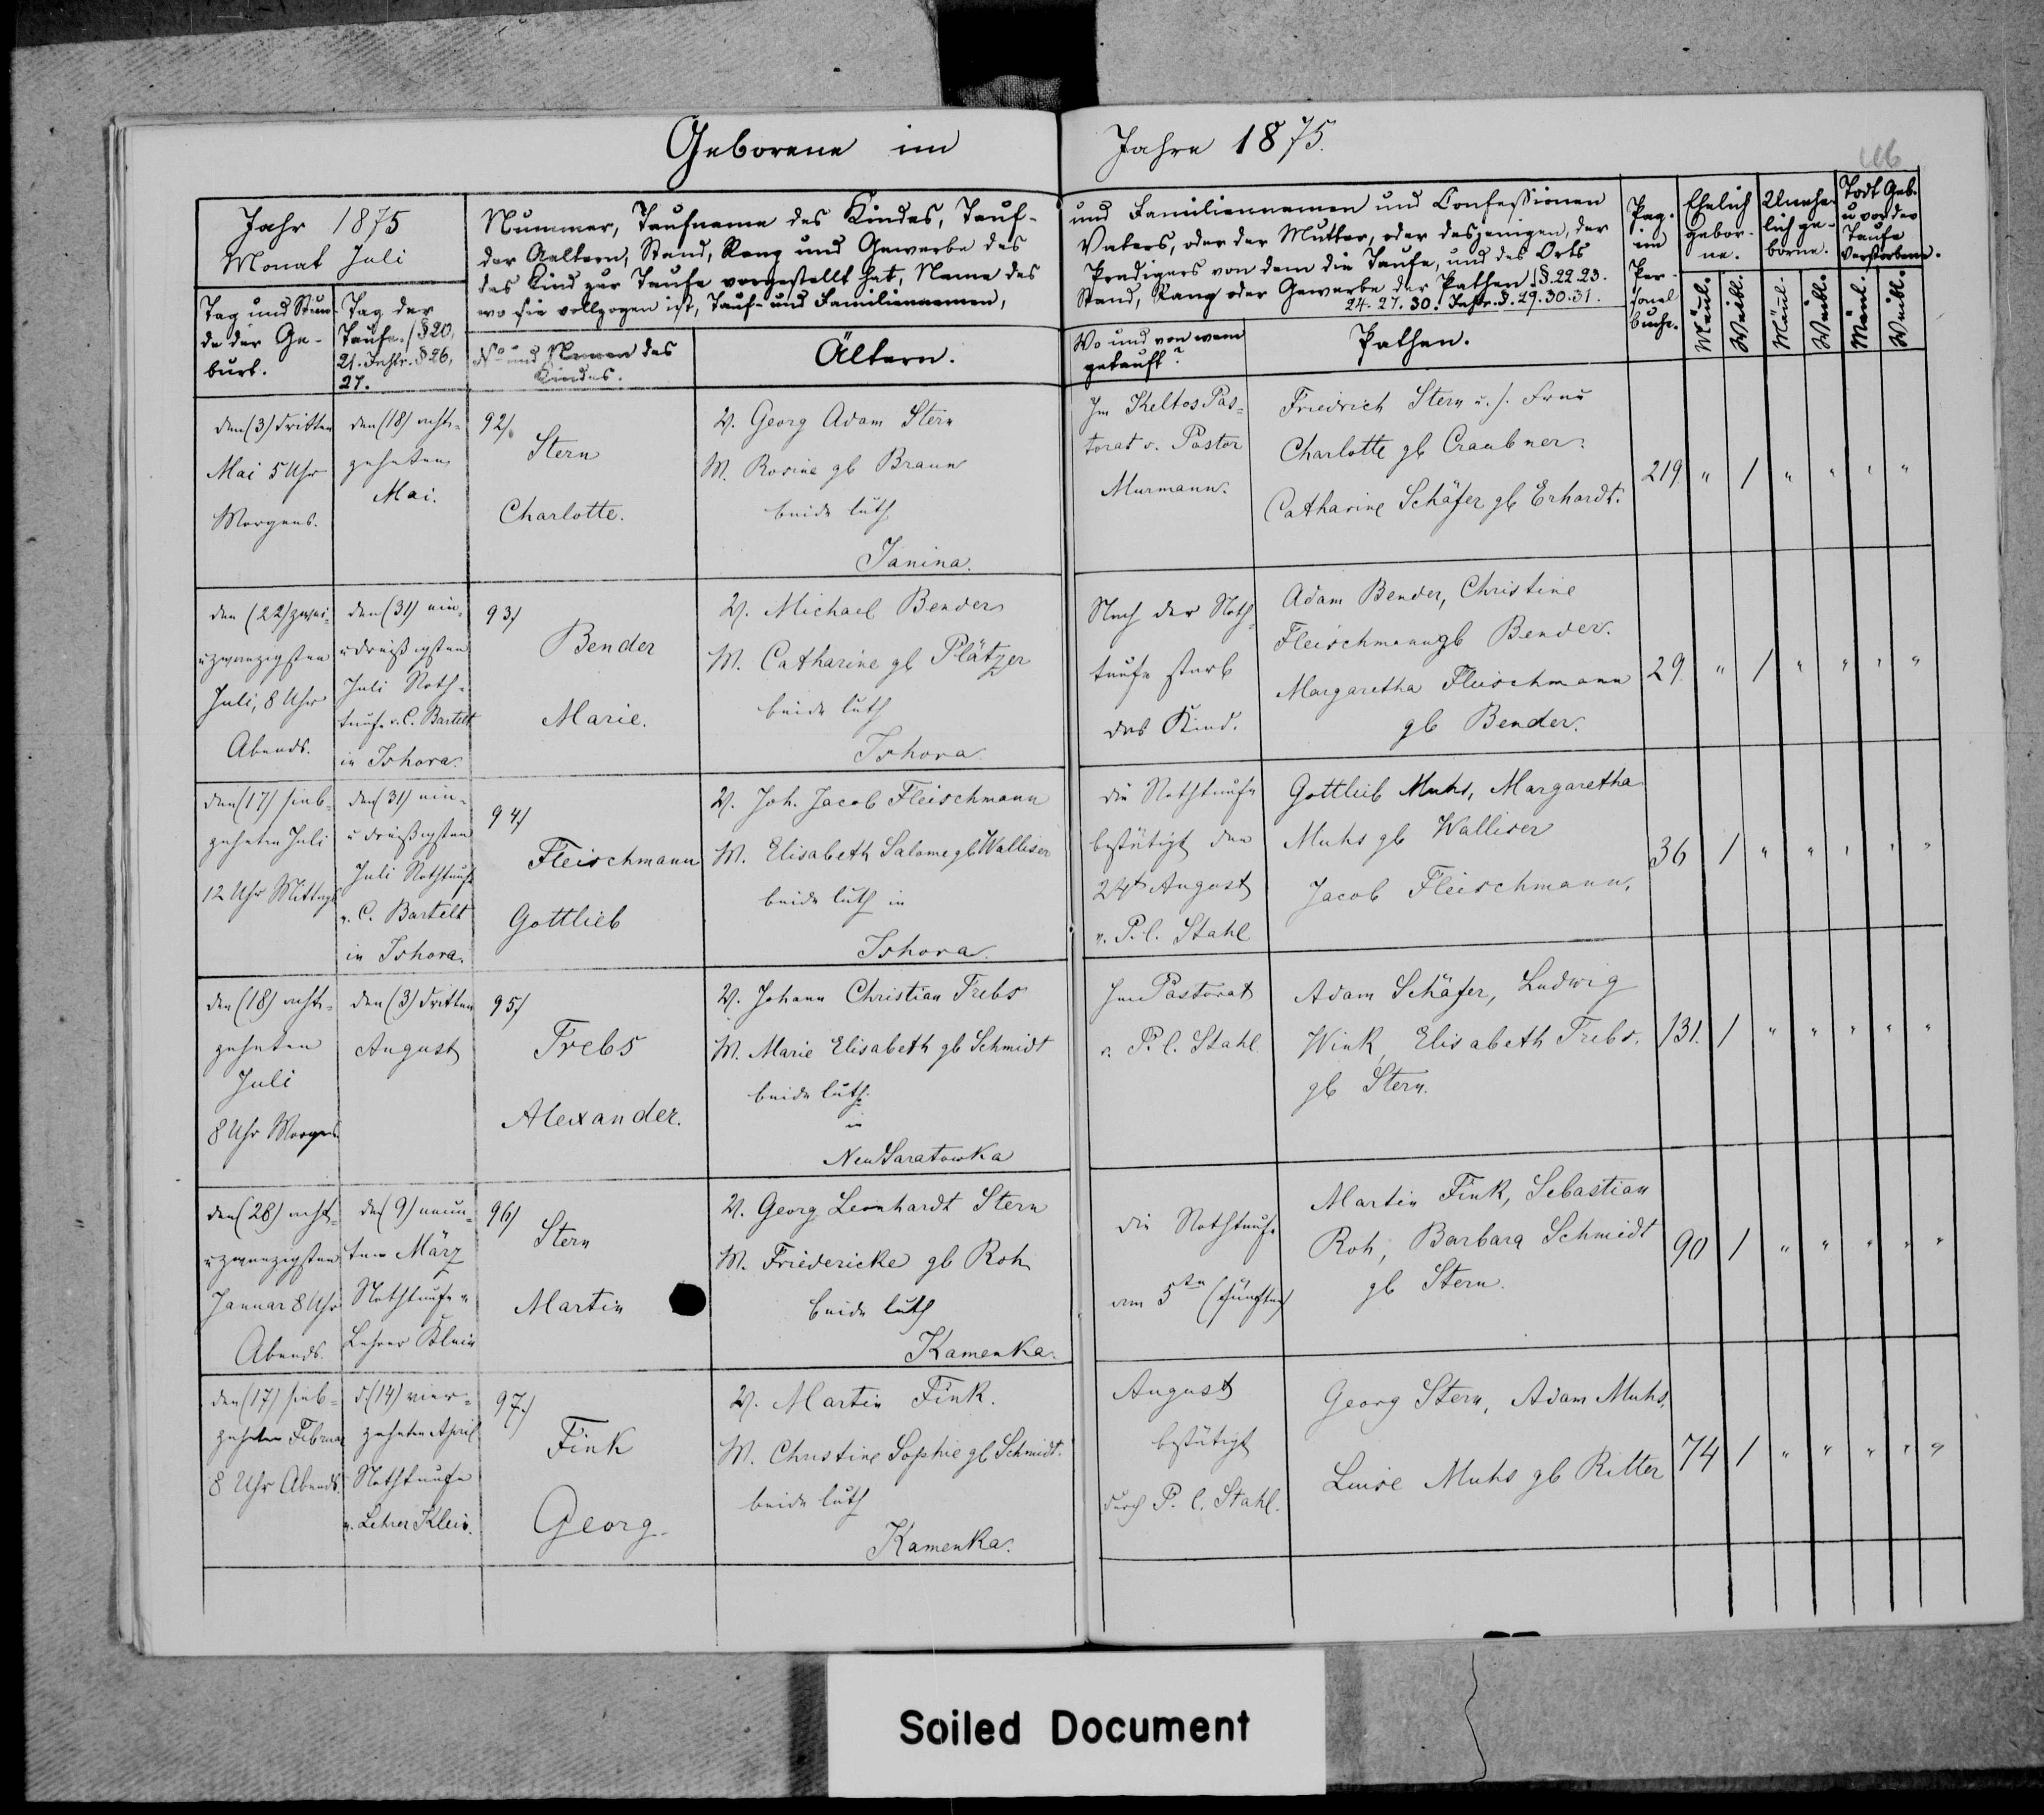 Geborene im Jahre 1875.
116
Jahr 1875
Monat Juli
Tag und Stun
de der Ge-
burt.
Tag der
Taufe. (§ 20,
21. Instr. § 26,
27.
Nummer, Taufname des Kindes, Tauf-
der Aeltern, Stand, Rang und Gewerbe des
das Kind zur Taufe vorgestellt hat, Name des
wo sie vollzogen ist, Tauf- und Familiennamen,
No und Namen des
Kindes.
Ältern.
und Familiennamen und Confessionen
Vaters, oder der Mutter, oder desjenigen, der
Predigers von dem die Taufe, und des Orts
Stand, Rang oder Gewerbe der Pathen. (§. 22. 23.
24. 27. 30. Instr. §. 29. 30. 31.
Wo und von wem
getauft?
Pathen.
Pag.
im
Per-
sonal
buche.
Ehelich
gebor-
ne.
Männl.
Weibl.
Unehe
lich ge-
borne.
Männl.
Weibl.
Todt Geb.
u vor der
Taufe
Verstorbene.
Männl.
Weibl.
den (3) dritten
Mai 5 Uhr
Morgens.
den (18) acht-
zehnten
Mai.
92/.
Stern
Charlotte.
V. Georg Adam Stern
M. Rosine gb Braun
beide luth
Janina.
Im Keltos Pas-
torat v. Pastor
Murmann.
Friedrich Stern u. s. Frau
Charlotte gb Craubner.
Catharine Schäfer gb Erhardt.
219. " / " " " "
den (22) zwei-
uzwanzigsten
Juli, 8 Uhr
Abends.
den (31) ein-
udreißigsten
Juli Noth-
taufe v. C. Bartelt
in Ishora.
93/
Bender
Marie.
V. Michael Bender
M. Catharine gb Plätzer
beide luth
Ishora.
Nach der Noth-
taufe starb
das Kind.
Adam Bender, Christine
Fleischmann gb Bender.
Margaretha Fleischmann
gb Bender.
29. " / " " " "
den (17) sieb-
zehnten Juli
12 Uhr Mittags
den (31) ein-
u dreißigsten
Juli Nothtaufe
v. C. Bartelt
in Ishora.
94/
Fleischmann
Gottlieb
V. Joh. Jacob Fleischmann
M. Elisabeth Salome gb Walliser
beide luth in
Ishora.
die Nothtaufe
bestätigt den
24t August
v. P. l. Stahl
Gottlieb Muhs, Margaretha
Muhs gb Walliser
Jacob Fleischmann.
36 / " " " " "
den (18) acht-
zehnten
Juli
8 Uhr Morgens
den (3) dritten
August
95/
Trebs
Alexander.
V. Johann Christian Trebs
M. Marie Elisabeth gb Schmidt
beide luth.
in
Neu Saratowka
Im Pastorat
v. P. l. Stahl.
Adam Schäfer, Ludwig
Wink, Elisabeth Trebs.
gb Stern.
131. / " " " " "
den (28) acht-
uzwanzigsten
Januar 8 Uhr
Abends.
den (9) neun-
ten März
Nothtaufe v
Lehrer Klein
96/
Stern
Martin
V. Georg Leonhardt Stern
M. Friedericke gb Roh
beide luth
Kamenka.
die Nothtaufe
am 5ten (fünften)
Martin Fink, Sebastian
Roh, Barbara Schmidt
gb Stern.
90 / " " " " "
den (17) sieb-
zehnten Februar
8 Uhr Abends.
d (14) vier-
zehnten April
Nothtaufe
v. Lehrer Klein.
97./
Fink
Georg.
V. Martin Fink.
M. Christine Sophie gb Schmidt.
beide luth
Kamenka.
August
bestätigt
durch P. l. Stahl.
Georg Stern, Adam Muhs,
Luise Muhs gb Ritter
74 / " " " " "
Soiled Document